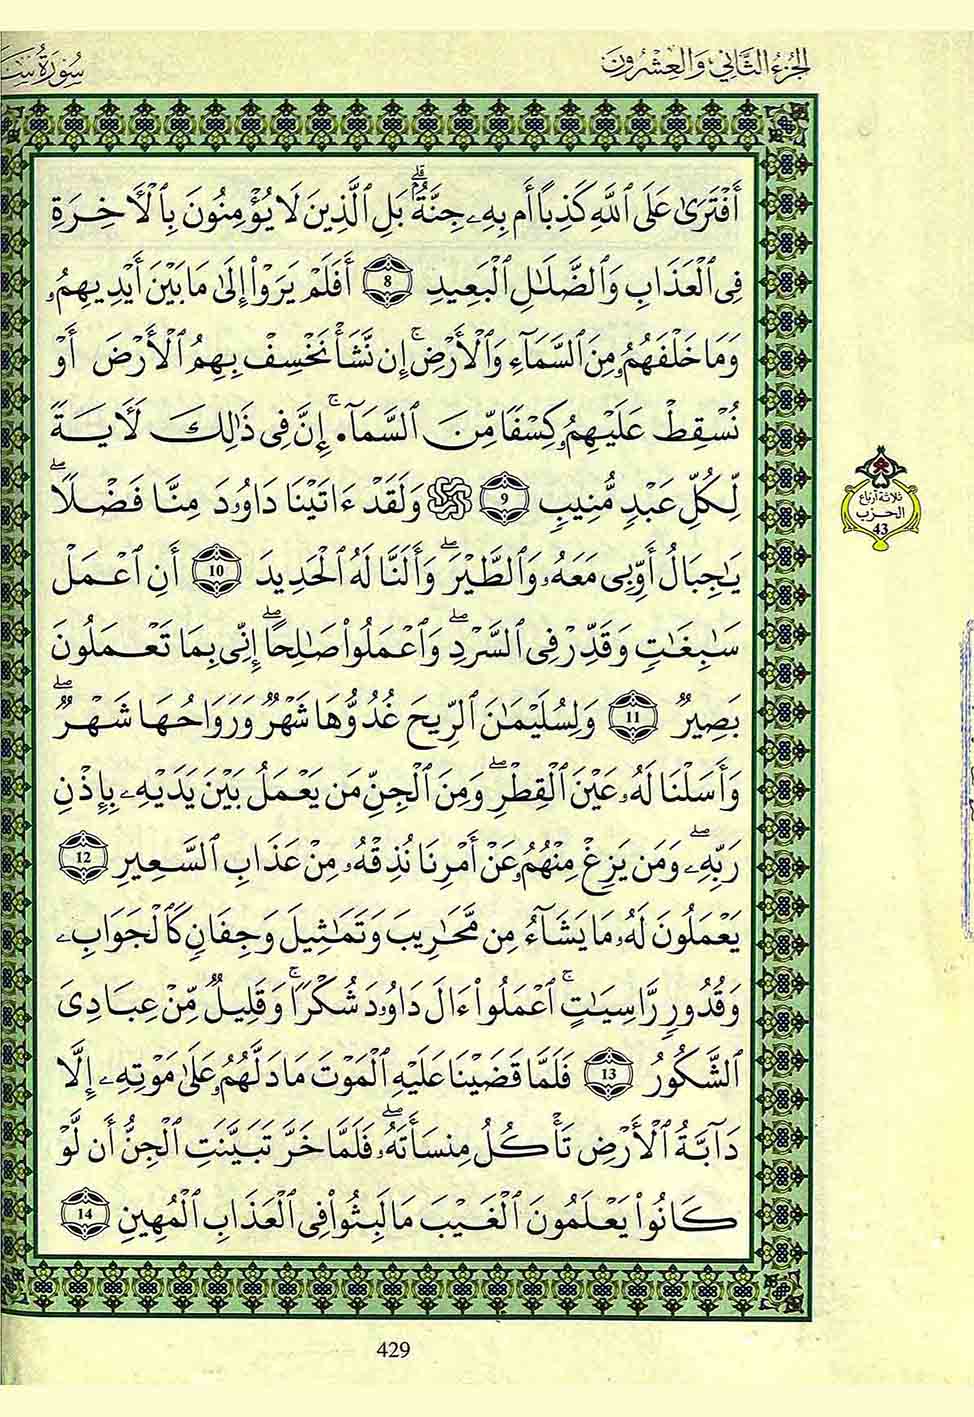 الجُزْءُ الثَّانِي وَالْعِشْرُونَ
سُورَةُ سَبَ
أَفْتَرَىٰ عَلَى ٱللَّهِ كَذِبًا أَم بِهِۦ جِنَّةٌۗ بَلِ ٱلَّذِينَ لَا يُؤْمِنُونَ بِٱلْأَخِرَةِ
فِى ٱلْعَذَابِ وَٱلضَّلَٰلِ ٱلْبَعِيدِ 8 أَفَلَمْ يَرَوْا۟ إِلَىٰ مَا بَيْنَ أَيْدِيهِمُۥ
وَمَا خَلْفَهُمُۥ مِنَ ٱلسَّمَآءِ وَٱلْأَرْضِۚ إِن نَّشَأْ نَخْسِفْ بِهِمُ ٱلْأَرْضَ أَوْ
نُسْقِطْ عَلَيْهِمُۥ كِسْفًا مِّنَ ٱلسَّمَآءِۚ إِنَّ فِى ذَٰلِكَ لَأَيَةً
لِّكُلِّ عَبْدٍ مُّنِيبٍ 9 وَلَقَدْ ءَاتَيْنَا دَاوُۥدَ مِنَّا فَضْلًاۖ
يَٰجِبَالُ أَوِّبِى مَعَهُۥ وَٱلطَّيْرَۖ وَأَلَنَّا لَهُ ٱلْحَدِيدَ 10 أَنِ ٱعْمَلْ
سَٰبِغَٰتٍ وَقَدِّرْ فِى ٱلسَّرْدِۖ وَٱعْمَلُوا۟ صَٰلِحًاۖ إِنِّى بِمَا تَعْمَلُونَ
بَصِيرٌ 11 وَلِسُلَيْمَٰنَ ٱلرِّيحَ غُدُوُّهَا شَهْرٌ وَرَوَاحُهَا شَهْرٌۖ
وَأَسَلْنَا لَهُۥ عَيْنَ ٱلْقِطْرِۖ وَمِنَ ٱلْجِنِّ مَن يَعْمَلُ بَيْنَ يَدَيْهِۦ بِإِذْنِ
رَبِّهِۦۖ وَمَن يَزِغْ مِنْهُمُۥ عَنْ أَمْرِنَا نُذِقْهُۥ مِنْ عَذَابِ ٱلسَّعِيرِ 12
يَعْمَلُونَ لَهُۥ مَا يَشَآءُ مِن مَّحَٰرِيبَ وَتَمَٰثِيلَ وَجِفَانٍ كَٱلْجَوَابِۦ
وَقُدُورٍ رَّاسِيَٰتٍۚ ٱعْمَلُوا۟ ءَالَ دَاوُۥدَ شُكْرًاۚ وَقَلِيلٌ مِّنْ عِبَادِىَ
ٱلشَّكُورُ 13 فَلَمَّا قَضَيْنَا عَلَيْهِ ٱلْمَوْتَ مَا دَلَّهُمُۥ عَلَىٰ مَوْتِهِۦ إِلَّا
دَآبَّةُ ٱلْأَرْضِ تَأْكُلُ مِنسَأَتَهُۥۖ فَلَمَّا خَرَّ تَبَيَّنَتِ ٱلْجِنُّ أَن لَّوْ
كَانُوا۟ يَعْلَمُونَ ٱلْغَيْبَ مَا لَبِثُوا۟ فِى ٱلْعَذَابِ ٱلْمُهِينِ 14
ثلاثة أرباع
الحزب
43
429